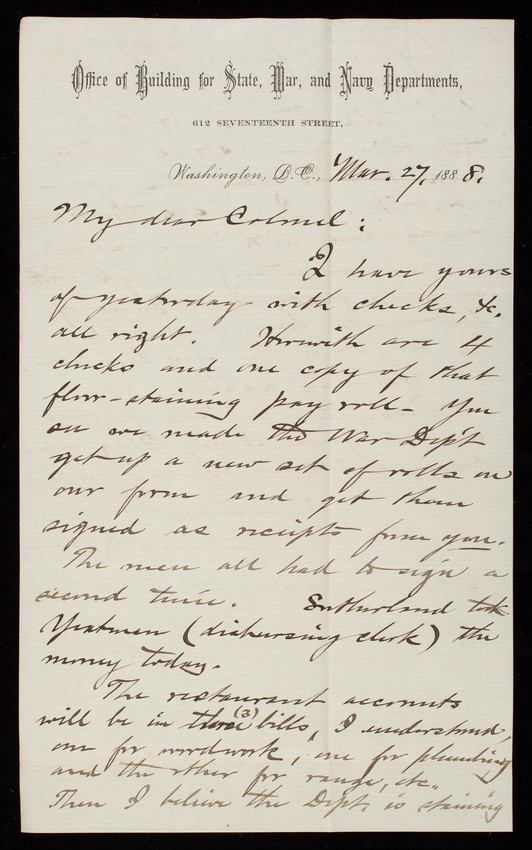 Office of Building for State, War, and Navy Departments,
612 SEVENTEENTH STREET,
Washington, D.C., Mar. 27, 1888.
My dear Colonel:
I have yours
of yesterday with checks, &c.
all right. Herewith are 4
checks and one copy of that
floor-staining pay roll - You
see we made the War Dep't
get up a new set of rolls on
our form and get them
signed as receipts from you.
The men all had to sign a
second time. Sutherland took
Yeatman (disbursing clerk) the
money today.
The restaurant accounts
will be in three (3) bills, I understand,
one for woodwork, one for plumbing
and the other for range, etc.
Then I believe the Dept. is staining